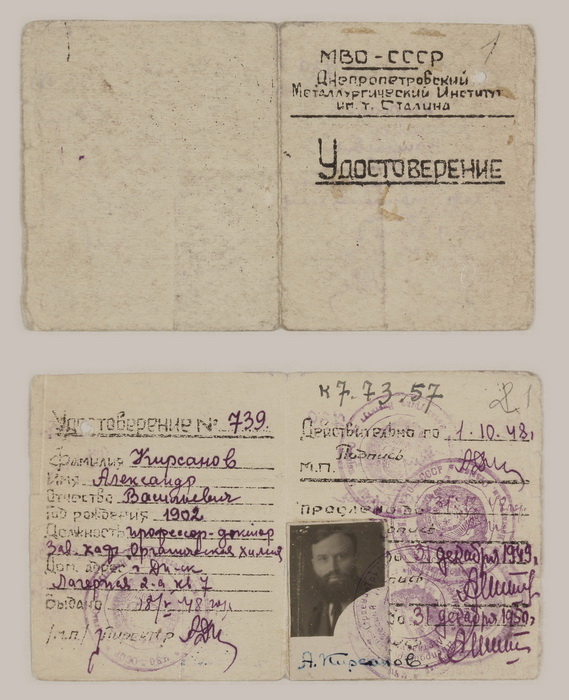 1
МВО-СССР
Днепропетровский
Металлургический Институт
им. т. Сталина
Удостоверение
к 7.73.57
2
Удостоверение № 739.
Фамилия Кирсанов
Имя Александр
Отчество Васильевич
Год рождения 1902
Должность профессор-доктор
Зав. каф. Органическая химия
Дом. адрес г. Дн-ск
Лагерная 2-а кв 7
Выдано 18/V 48 г.
/М.П./ Директор
Действительно по 1.10.48.
Подпись
М.П.
Продлено
31 декабря 1949г.
31 декабря 1950г.
А. Кирсанов